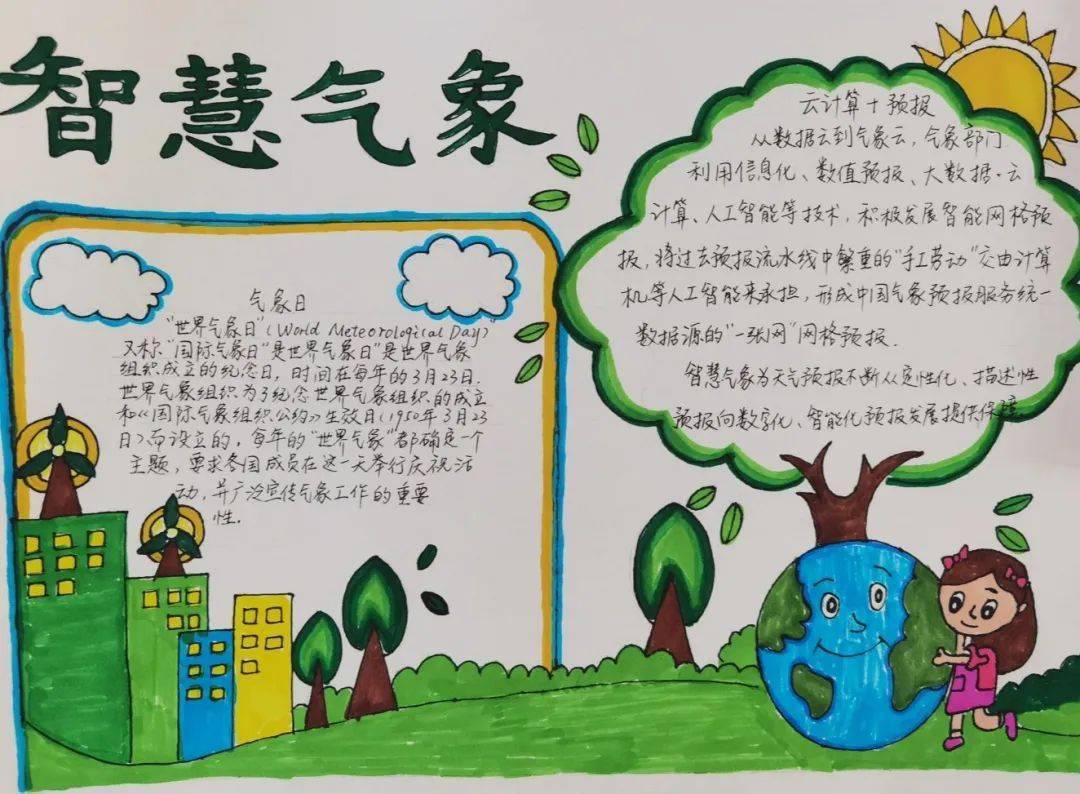 智慧气象
气象日
“世界气象日”(World Meteorological Day)”
又称“国际气象日”是世界气象日”是世界气象
组织成立的纪念日，时间在每年的3月23日.
世界气象组织为了纪念世界气象组织的成立
和《国际气象组织公约》生效日(1950年3月23
日)而设立的，每年的“世界气象”都确定一个
主题，要求各国成员在这一天举行庆祝活
动，并广泛宣传气象工作的重要
性.
云计算+预报
从数据云到气象云，气象部门
利用信息化、数值预报、大数据.云
计算、人工智能等技术，积极发展智能网格预
报，将过去预报流水线中繁重的“手工劳动”交由计算
机等人工智能来承担，形成中国气象预报服务统一
数据源的“一张网”网格预报.
智慧气象为天气预报不断从定性化、描述性
预报向数字化、智能化预报发展提供保障.